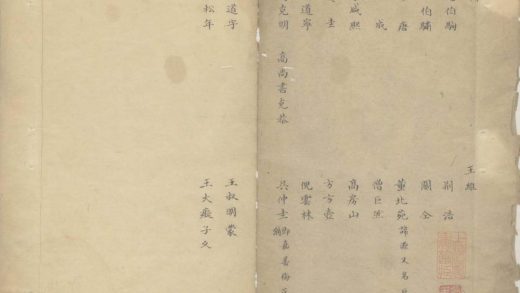 王維
伯駒 荆浩
伯驌 關仝
唐 董北苑 諱源又名
成 僧巨然
咸熙 高房山
道寧 方方壺
圭 倪雲林
克明 高尚書克恭 吳仲圭 即嘉善梅
道字 王叔明蒙
松年 王大癡子久